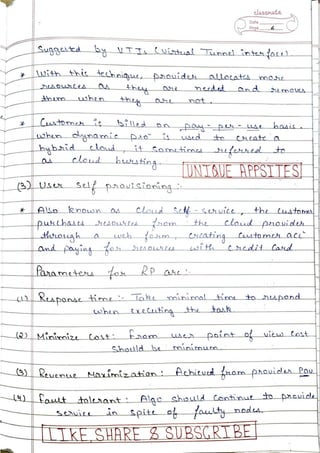 classmate
Date
Page 6
Suggested by VTIs (Virtual Tunnel interface)
* With this technique, provider allocates more
resources as they are needed and removes
them when they are not.
* Customer is billed on pay-per-use basis.
when dynamic pro is used to create a
hybrid cloud, it sometimes referred to
as cloud bursting.
UNIQUE APPSITES
(3) User self provisioning :-
* Also known as cloud self-service, the customer
purchases resources from the cloud provider
through a web form, creating customer acc
and paying for resources with credit card.
Parameters for RP are :-
(1) Response time :- Take minimal time to respond
when executing the task.
(2) Minimize Cost : From user point of view cost
should be minimum
(3) Revenue Maximization : Achieved from provider Pov
(4) Fault tolerant : Algo should continue to provide
service in spite of faulty nodes.
LIKE, SHARE & SUBSCRIBE